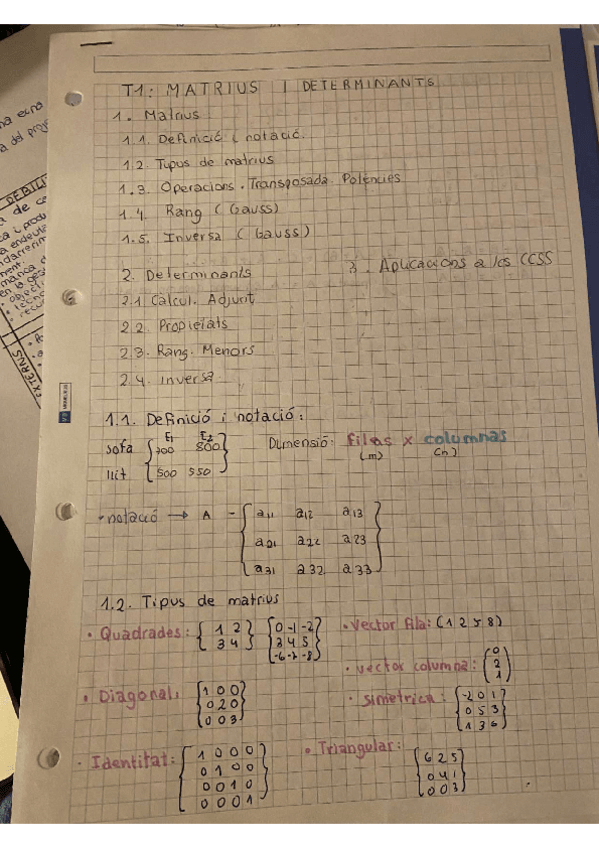 T1: MATRIUS I DETERMINANTS
1. Matrius
1.1. Definició i notació.
1.2. Tipus de matrius
1.3. Operacions. Transposada. Potències
1.4. Rang (Gauss)
1.5. Inversa (Gauss)
2. Determinants
3. Aplicacions a les CCSS
2.1 Càlcul. Adjunt
2.2. Propietats
2.3. Rang. Menors
2.4. Inversa.
1.1. Definició i notació:
E1 E2
sofa 700 800
llit 500 550
Dimensió: files x columnas
(m) (n)
• notació → A = a11 a12 a13
a21 a22 a23
a31 a32 a33
1.2. Tipus de matrius
• Quadrades: 1 2
3 4
0 -1 -2
3 4 5
-6 -7 -8
• Vector fila: (1 2 5 8)
• vector columna: 0
2
1
• Diagonal: 1 0 0
0 2 0
0 0 3
• Simètrica: -2 0 1
0 5 3
1 3 6
• Identitat: 1 0 0 0
0 1 0 0
0 0 1 0
0 0 0 1
• Triangular:
6 2 5
0 4 1
0 0 3